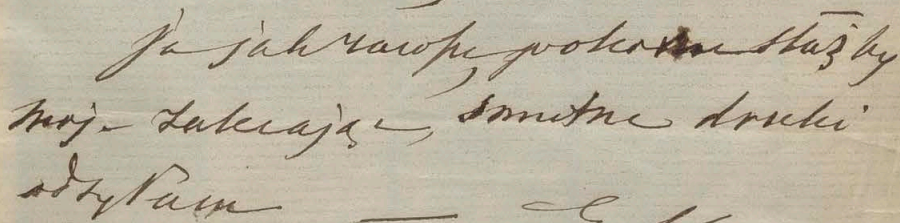 ja jak zawsze, pokorne służby
moje zalecając, smutne druki
odsyłam